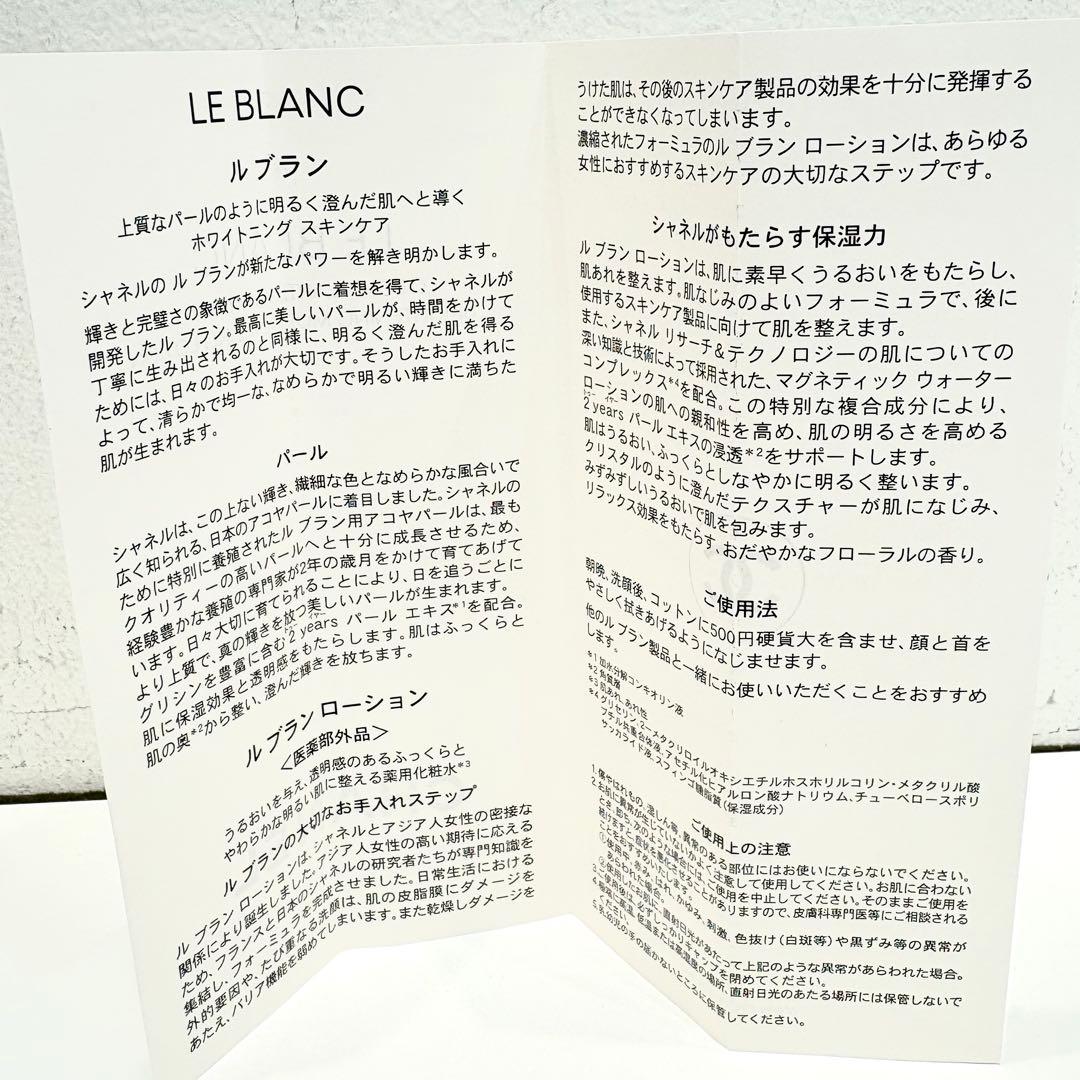 LE BLANC
ル ブラン
上質なパールのように明るく澄んだ肌へと導く
ホワイトニング スキンケア
シャネルの ル ブランが新たなパワーを解き明かします。
輝きと完璧さの象徴であるパールに着想を得て、シャネルが
開発したル ブラン。最高に美しいパールが、時間をかけて
丁寧に生み出されるのと同様に、明るく澄んだ肌を得る
ためには、日々のお手入れが大切です。そうしたお手入れに
よって、清らかで均一な、なめらかで明るい輝きに満ちた
肌が生まれます。
パール
シャネルは、この上ない輝き、繊細な色となめらかな風合いで
広く知られる、日本のアコヤパールに着目しました。シャネルの
ために特別に養殖されたル ブラン用アコヤパールは、最も
クオリティーの高いパールへと十分に成長させるため、
経験豊かな養殖の専門家が2年の歳月をかけて育てあげて
います。日々大切に育てられることにより、日を追うごとに
より上質で、真の輝きを放つ美しいパールが生まれます。
グリシンを豊富に含む2 years パール エキス*1を配合。
肌に保湿効果と透明感をもたらします。肌はふっくらと
肌の奥*2から整い、澄んだ輝きを放ちます。
ル ブラン ローション
<医薬部外品>
うるおいを与え、透明感のあるふっくらと
やわらかな明るい肌に整える薬用化粧水*3
ル ブランの大切なお手入れステップ
ル ブラン ローションは、シャネルとアジア人女性の密接な
関係により誕生しました。アジア人女性の高い期待に応える
ため、フランスと日本のシャネルの研究者たちが専門知識を
集結し、フォーミュラを完成させました。日常生活における
外的要因や、たび重なる洗顔は、肌の皮脂膜にダメージを
あたえ、バリア機能を弱めてしまいます。また乾燥しダメージを
うけた肌は、その後のスキンケア製品の効果を十分に発揮する
ことができなくなってしまいます。
濃縮されたフォーミュラのル ブラン ローションは、あらゆる
女性におすすめするスキンケアの大切なステップです。
シャネルがもたらす保湿力
ル ブラン ローションは、肌に素早くうるおいをもたらし、
肌あれを整えます。肌なじみのよいフォーミュラで、後に
使用するスキンケア製品に向けて肌を整えます。
また、シャネル リサーチ＆テクノロジーの肌についての
深い知識と技術によって採用された、マグネティック ウォーター
コンプレックス*4を配合。この特別な複合成分により、
ローションの肌への親和性を高め、肌の明るさを高める
2 years パール エキスの浸透*2をサポートします。
肌はうるおい、ふっくらとしなやかに明るく整います。
クリスタルのように澄んだテクスチャーが肌になじみ、
みずみずしいうるおいで肌を包みます。
リラックス効果をもたらす、おだやかなフローラルの香り。
ご使用法
朝晩、洗顔後、コットンに500円硬貨大を含ませ、顔と首を
やさしく拭きあげるようになじませます。
他のル ブラン製品と一緒にお使いいただくことをおすすめ
します。
*1 加水分解コンキオリン液
*2 角質層
*3 肌あれ、あれ性
*4 グリセリン、2-メタクリロイルオキシエチルホスホリルコリン・メタクリル酸
ブチル共重合体液、アセチル化ヒアルロン酸ナトリウム、チューベロースポリ
サッカライド液、スフィンゴ糖脂質(保湿成分)
ご使用上の注意
1. 傷やはれもの、湿しん等、異常のある部位にはお使いにならないでください。
2. お肌に異常が生じていないかよく注意して使用してください。お肌に合わない
とき、即ち、次のような場合には、使用を中止してください。そのままご使用を
続けますと、症状を悪化させることがありますので、皮膚科専門医等にご相談される
ことをおすすめいたします。
①使用中、赤み、はれ、かゆみ、刺激、色抜け(白斑等)や黒ずみ等の異常が
あらわれた場合。
②使用したお肌に、直射日光があたって上記のような異常があらわれた場合。
3. ご使用後は、必ずしっかりキャップを閉めてください。
4. 極端に高温、低温または高湿度の場所、直射日光のあたる場所には保管しないで
ください。
5. 乳幼児の手の届かないところに保管してください。